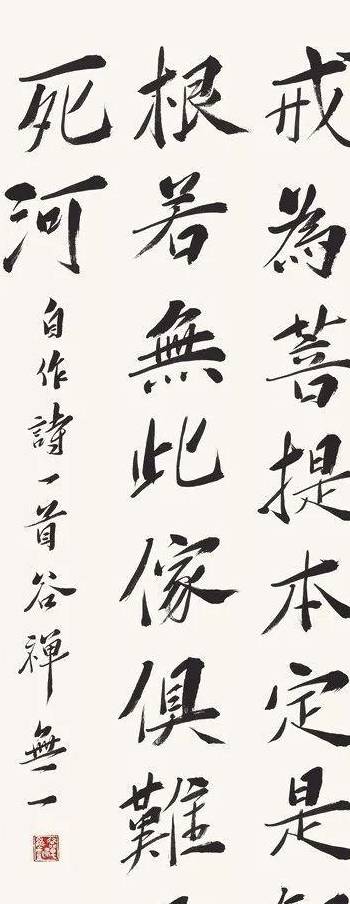 戒為菩提本定是
根若無此傢俱難
死河
自作詩一首谷禪無一